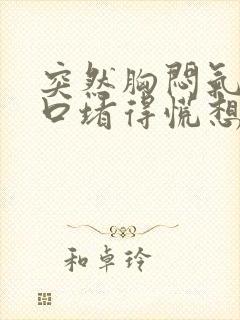 突然胸闷氣
口堵得慌想
和卓玲